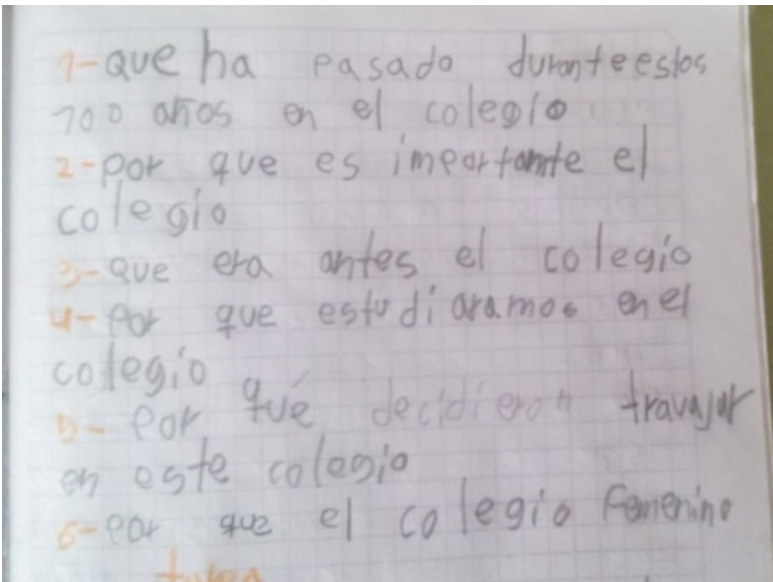 1-que ha pasado durante estos
100 años en el colegio
2-por que es importante el
colegio
3-que era antes el colegio
4-por que estudiaramos en el
colegio
5-por qué decidieron travajar
en este colegio
6-por que el colegio femenino